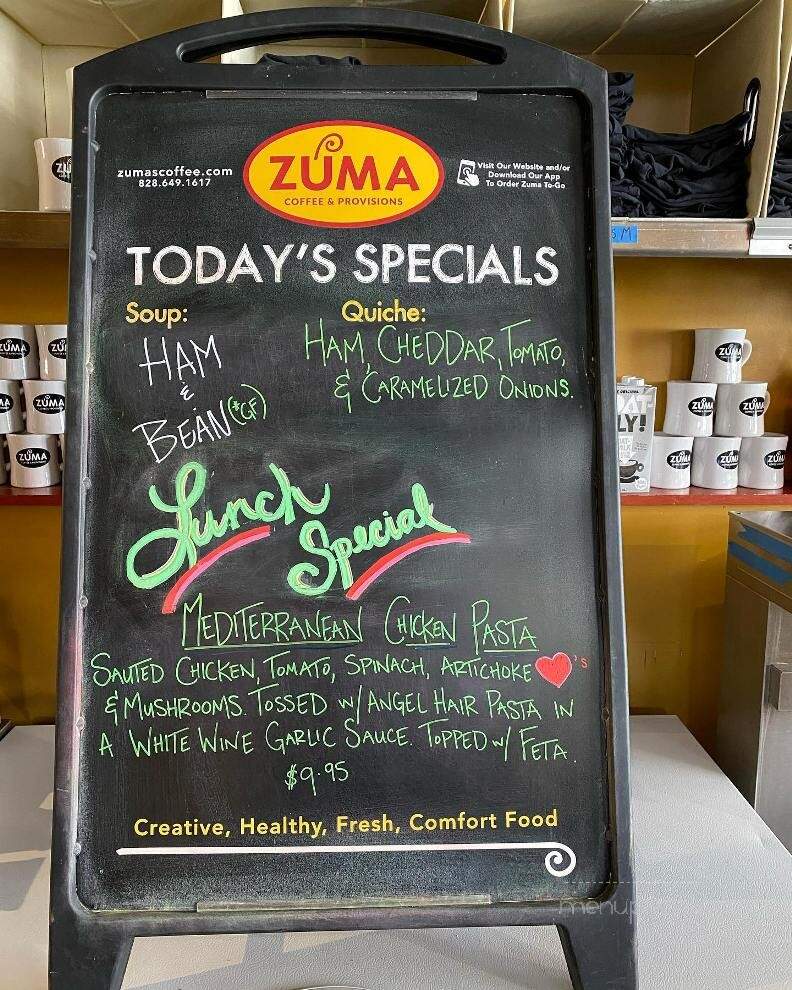 zumascoffee.com
828.649.1617
ZUMA
COFFEE & PROVISIONS
Visit Our Website and/or
Download Our App
To Order Zuma To-Go
TODAY'S SPECIALS
Soup:
HAM
&
BEAN (*GF)
Quiche:
HAM, CHEDDAR, TOMATO,
& CARAMELIZED ONIONS.
Lunch
Special
MEDITERRANEAN CHICKEN PASTA
SAUTED CHICKEN, TOMATO, SPINACH, ARTICHOKE ❤'s
& MUSHROOMS. TOSSED W/ ANGEL HAIR PASTA IN
A WHITE WINE GARLIC SAUCE. TOPPED W/ FETA.
$9.95
Creative, Healthy, Fresh, Comfort Food
ZUMA
ZUMA
ZUMA
ZUMA
ZUMA
ZUMA
ZUMA
ZUMA
LY!
M